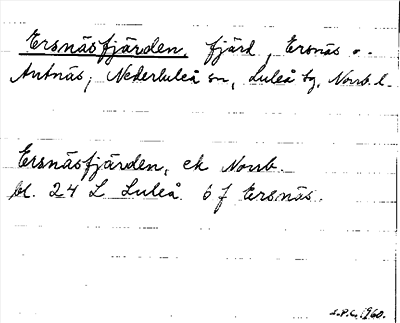 Ersnäsfjärden, fjärd, Ersnäs o.
Antnäs, Nederluleå sn, Luleå tg, Norrb. l.
Ersnäsfjärden, ek Norrb.
bl. 24 L Luleå 6 f Ersnäs.
S.P.C. 1960.